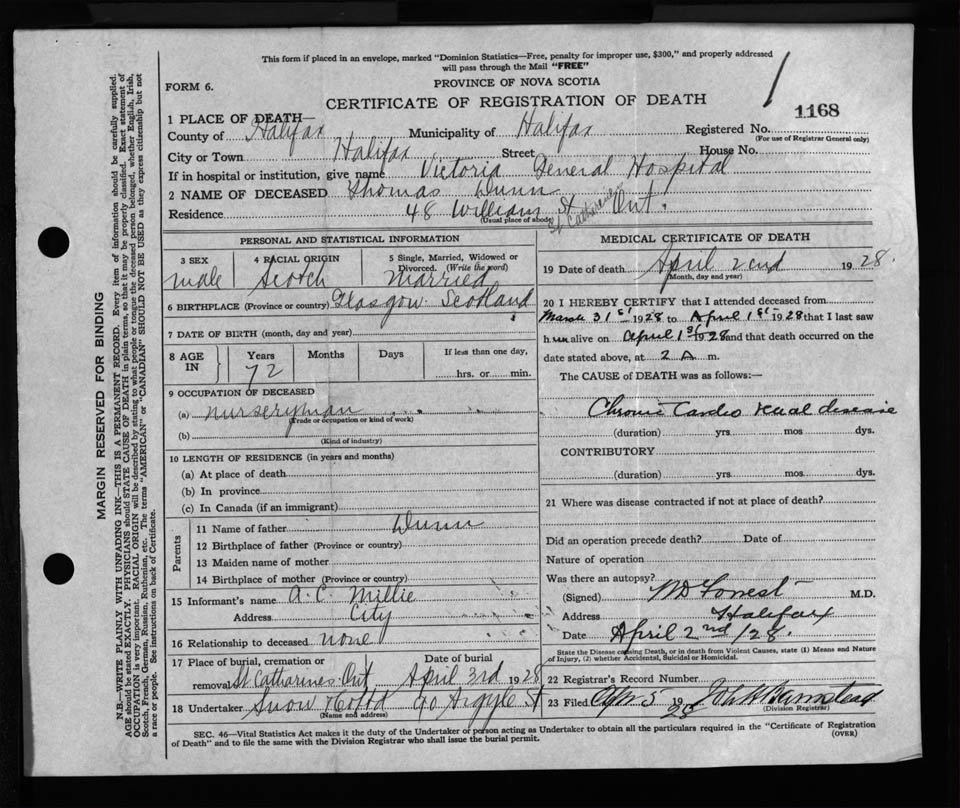 This form if placed in an envelope, marked "Dominion Statistics—Free, penalty for improper use, $300," and properly addressed
will pass through the Mail "FREE"
FORM 6.
PROVINCE OF NOVA SCOTIA
CERTIFICATE OF REGISTRATION OF DEATH
1168
1 PLACE OF DEATH—
County of Halifax Municipality of Halifax Registered No.
(For use of Registrar General only)
City or Town Halifax Street House No.
If in hospital or institution, give name Victoria General Hospital
2 NAME OF DECEASED Thomas Dunn
Residence 48 William St St Catharines Ont.
(Usual place of abode)
PERSONAL AND STATISTICAL INFORMATION
3 SEX 4 RACIAL ORIGIN 5 Single, Married, Widowed or
Divorced. (Write the word)
male Scotch Married
6 BIRTHPLACE (Province or country) Glasgow Scotland
7 DATE OF BIRTH (month, day and year)
8 AGE IN Years Months Days If less than one day,
72 hrs. or min.
9 OCCUPATION OF DECEASED
(a) nurseryman
(Trade or occupation or kind of work)
(b)
(Kind of industry)
10 LENGTH OF RESIDENCE (in years and months)
(a) At place of death
(b) In province
(c) In Canada (if an immigrant)
Parents
11 Name of father Dunn
12 Birthplace of father (Province or country)
13 Maiden name of mother
14 Birthplace of mother (Province or country)
15 Informant's name A. C. Millie
Address City
16 Relationship to deceased none
17 Place of burial, cremation or Date of burial
removal St Catharines Ont April 3rd 1928
18 Undertaker Snow & Co Ltd 90 Argyle St
(Name and address)
MEDICAL CERTIFICATE OF DEATH
19 Date of death April 2cnd 1928.
(Month, day and year)
20 I HEREBY CERTIFY that I attended deceased from
March 31st 1928 to April 1st 1928 that I last saw
him alive on April 1st 1928 and that death occurred on the
date stated above, at 2 A m.
The CAUSE of DEATH was as follows:—
Chronic Cardio renal disease
(duration) yrs mos dys.
CONTRIBUTORY
(duration) yrs mos dys.
21 Where was disease contracted if not at place of death?
Did an operation precede death? Date of
Nature of operation
Was there an autopsy?
(Signed) WD Forrest M.D.
Address Halifax
Date April 2nd /28.
State the Disease causing Death, or in death from Violent Causes, state (1) Means and Nature
of Injury, (2) whether Accidental, Suicidal or Homicidal.
22 Registrar's Record Number
23 Filed Apr 5 1928 John W Barnstead
(Division Registrar)
SEC. 46—Vital Statistics Act makes it the duty of the Undertaker or person acting as Undertaker to obtain all the particulars required in the "Certificate of Registration
of Death" and to file the same with the Division Registrar who shall issue the burial permit. (OVER)
MARGIN RESERVED FOR BINDING
N.B.—WRITE PLAINLY WITH UNFADING INK—THIS IS A PERMANENT RECORD. Every item of information should be carefully supplied.
AGE should be stated EXACTLY. PHYSICIANS should STATE CAUSE OF DEATH in plain terms, so that it may be properly classified. Exact statement of
OCCUPATION is very important. RACIAL ORIGIN will be described by stating to what people or tongue the deceased person belonged, whether English, Irish,
Scotch, French, German, Russian, Ruthenian, etc. The terms "AMERICAN" or "CANADIAN" SHOULD NOT BE USED as they express citizenship but not
a race or people. See instructions on back of Certificate.